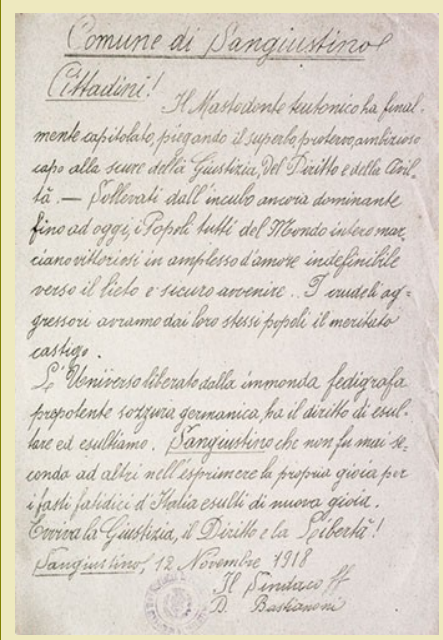 Comune di Sangiustino
Cittadini!
Il Mastodonte teutonico ha final-
mente capitolato, piegando il superbo, protervo, ambizioso
capo alla scure della Giustizia, Del Diritto e della Civil-
tà. — Sollevati dall'incubo ancora dominante
fino ad oggi, i Popoli tutti del Mondo intero mar-
ciano vittoriosi in amplesso d'amore indefinibile
verso il lieto e sicuro avvenire.. I crudeli ag-
gressori avranno dai loro stessi popoli il meritato
castigo.
L'Universo liberato dalla immonda fedigrafa
prepotente sozzura germanica, ha il diritto di esul-
tare ed esultiamo. Sangiustino che non fu mai se-
condo ad altri nell'esprimere la propria gioia per
i fasti fatidici d'Italia esulti di nuova gioia.
Evviva la Giustizia, il Diritto e la Libertà!
Sangiustino, 12 Novembre 1918
Il Sindaco ff
D. Bastianoni